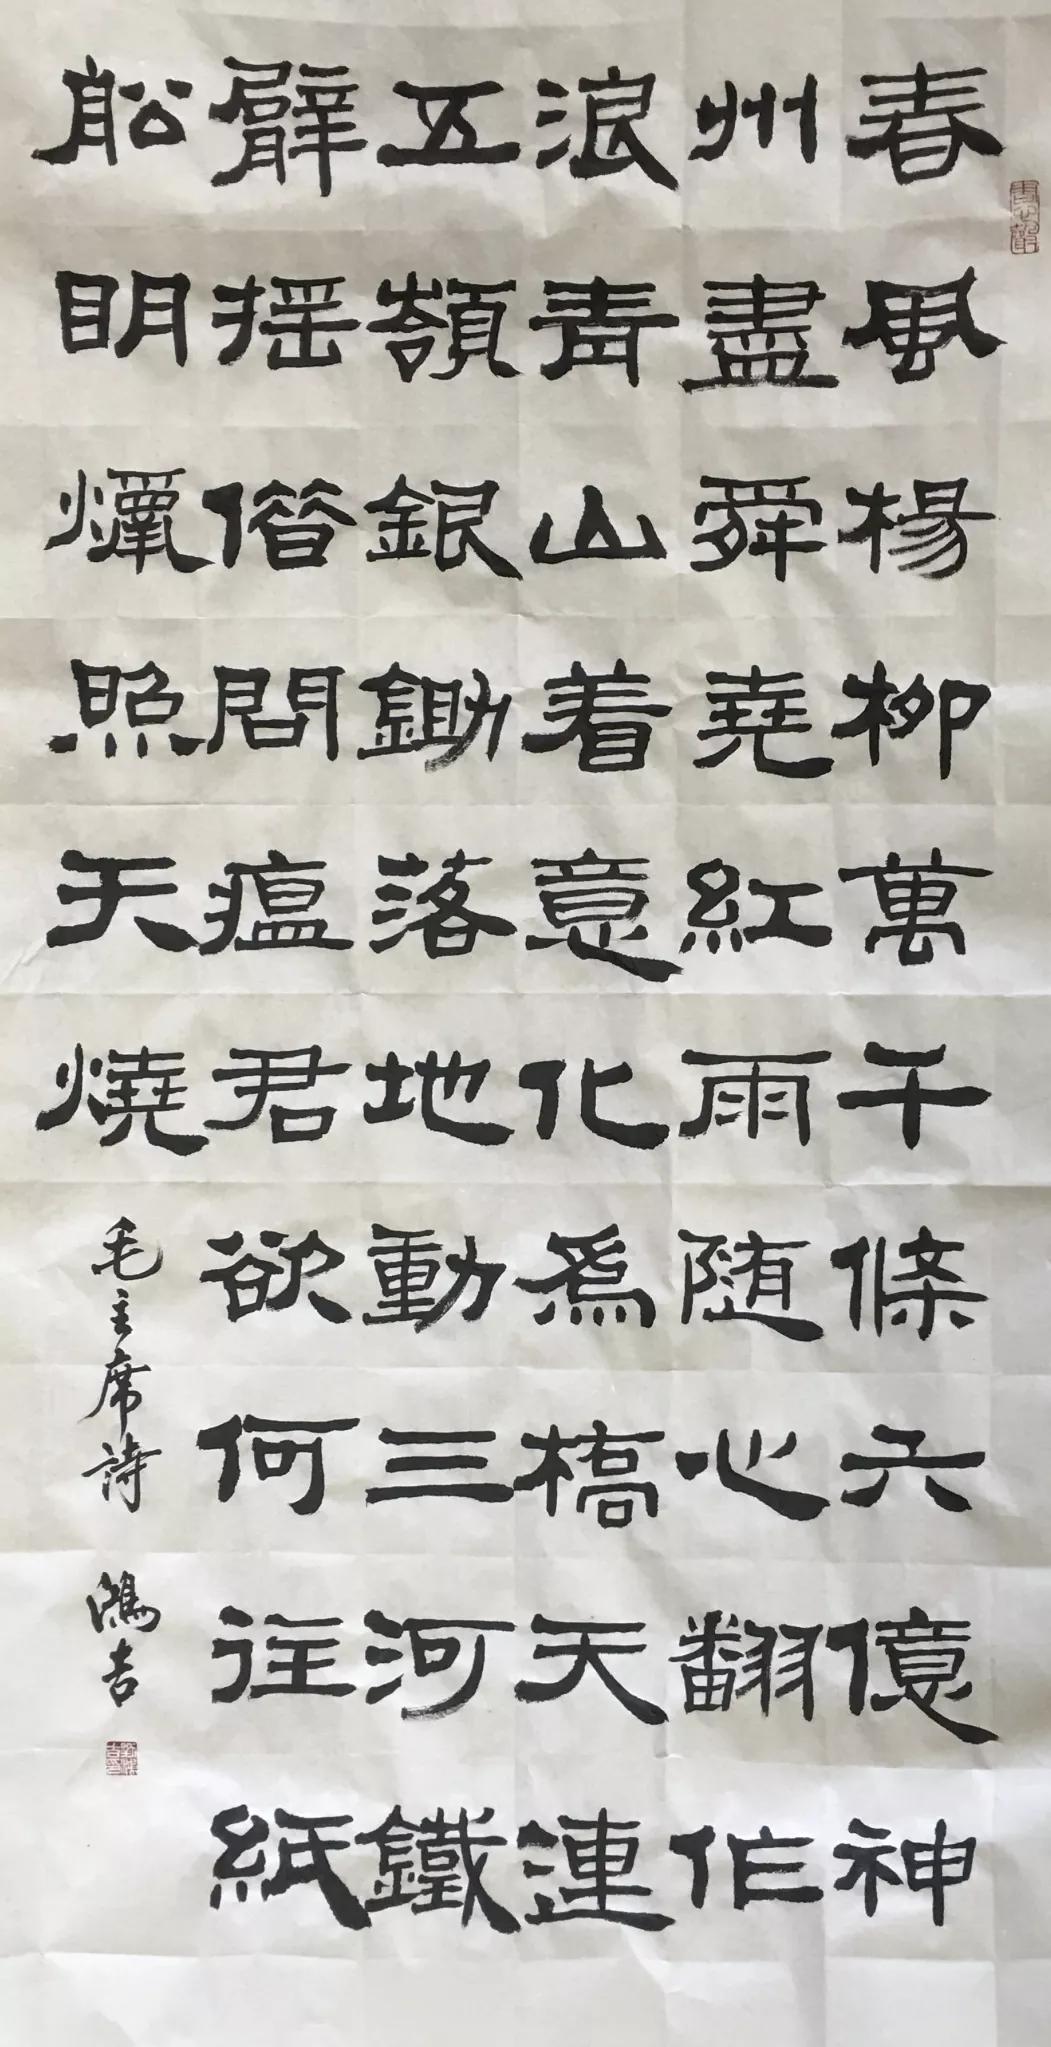 春風楊柳萬千條六億神
州盡舜堯紅雨随心翻作
浪青山着意化爲橋天連
五嶺銀鋤落地動三河鐵
臂摇借問瘟君欲何往紙
舩明燭照天燒
毛主席詩 鴻吉